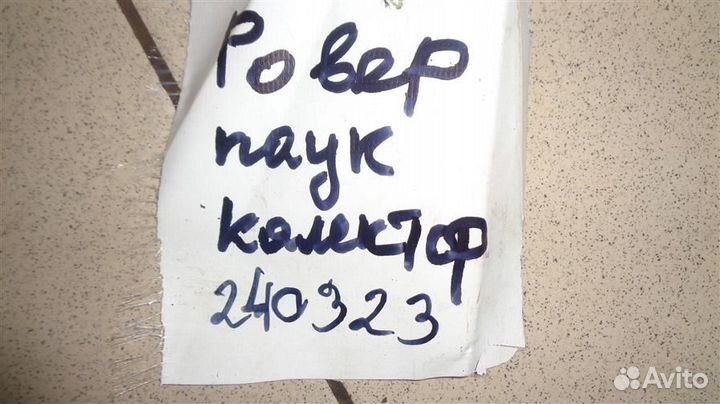 Ровер
паук
колектор
240323
Avito